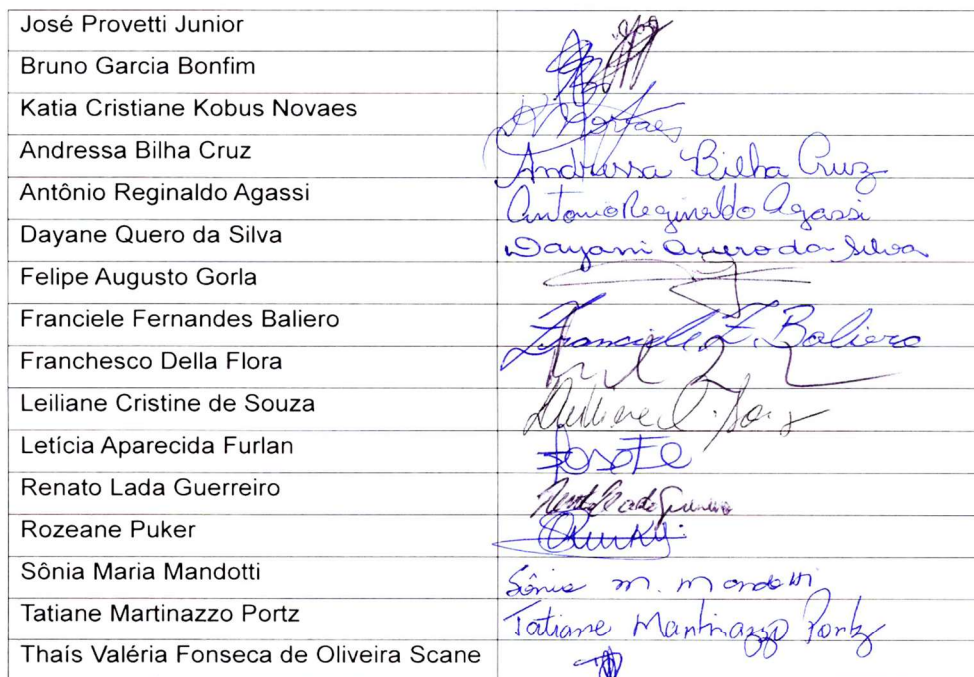 José Provetti Junior
Bruno Garcia Bonfim
Katia Cristiane Kobus Novaes
Andressa Bilha Cruz Andressa Bilha Cruz
Antônio Reginaldo Agassi Antonio Reginaldo Agassi
Dayane Quero da Silva Dayani Quero da Silva
Felipe Augusto Gorla
Franciele Fernandes Baliero Franciele F. Baliero
Franchesco Della Flora
Leiliane Cristine de Souza
Letícia Aparecida Furlan
Renato Lada Guerreiro
Rozeane Puker
Sônia Maria Mandotti Sônia M. Mandotti
Tatiane Martinazzo Portz Tatiane Martinazzo Portz
Thaís Valéria Fonseca de Oliveira Scane